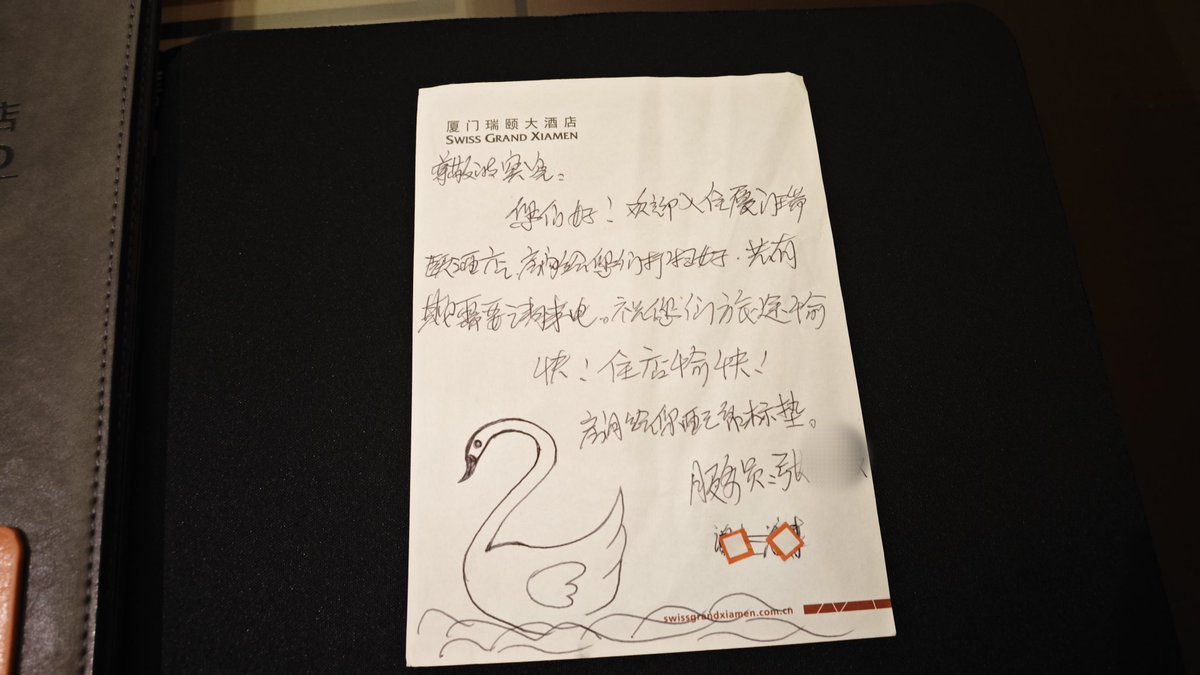 店
厦门瑞颐大酒店
SWISS GRAND XIAMEN
尊敬的宾客：
您们好！欢迎入住厦门瑞
颐酒店，房间给您们打扫好．若有
其它需要请来电。祝您们旅途愉
快！住店愉快！
房间给您配了鼠标垫。
服务员：张
swissgrandxiamen.com.cn